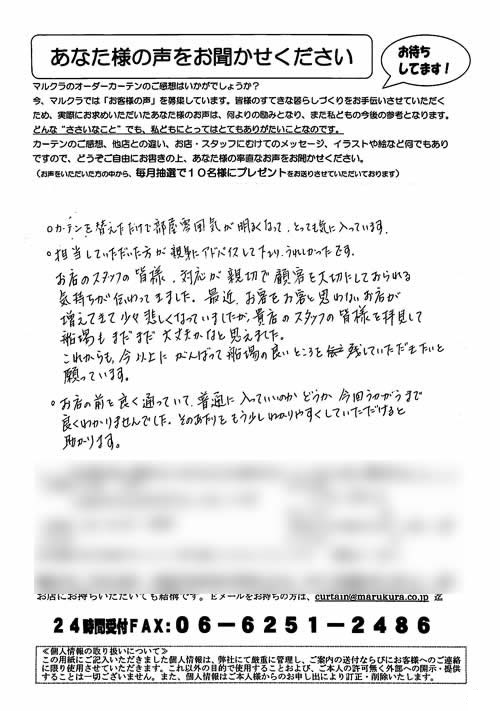 あなた様の声をお聞かせください
お待ち
してます!
マルクラのオーダーカーテンのご感想はいかがでしょうか?
今、マルクラでは「お客様の声」を募集しています。皆様のすてきな暮らしづくりをお手伝いさせていただく
ため、実際にお求めいただいたあなた様のお声は、何よりの励みとなり、また私どもの今後の参考となります。
どんな“ささいなこと”でも、私どもにとってはとてもありがたいことなのです。
カーテンのご感想、他店との違い、お店・スタッフにむけてのメッセージ、イラストや絵など何でもあり
ですので、どうぞご自由にお書きの上、あなた様の率直なお声をお聞かせください。
(お声をいただいた方の中から、毎月抽選で10名様にプレゼントをお送りさせていただいております)
○カーテンを替えただけで部屋雰囲気が明るくなって、とっても気に入っています。
○担当していただいた方が親身にアドバイスして下さり、うれしかったです。
お店のスタッフの皆様、対応が親切で顧客を大切にしておられる
気持ちが伝わってきました。最近、お客をお客と思わないお店が
増えてきて少々悲しくなっていましたが、貴店のスタッフの皆様を拝見して
船場もまだまだ大丈夫かなと思えました。
これからも、今以上にがんばって船場の良いところを伝え残していただきたいと
願っています。
○お店の前を良く通っていて、普通に入っていいのかどうか今回うかがうまで
良くわかりませんでした。そのあたりをもう少しわかりやすくしていただけると
助かります。
お店にお持ちいただいても結構です。Eメールをお持ちの方は、curtain@marukura.co.jp 迄
24時間受付FAX:06-6251-2486
≪個人情報の取り扱いについて≫
この用紙にご記入いただきました個人情報は、弊社にて厳重に管理し、ご案内の送付ならびにお客様へのご連絡
に限り使用させていただきます。これ以外の目的で使用することおよび、ご本人の許可無く外部への開示・提供
することは一切ございません。また、個人情報はご本人様からのお申し出により訂正・削除いたします。